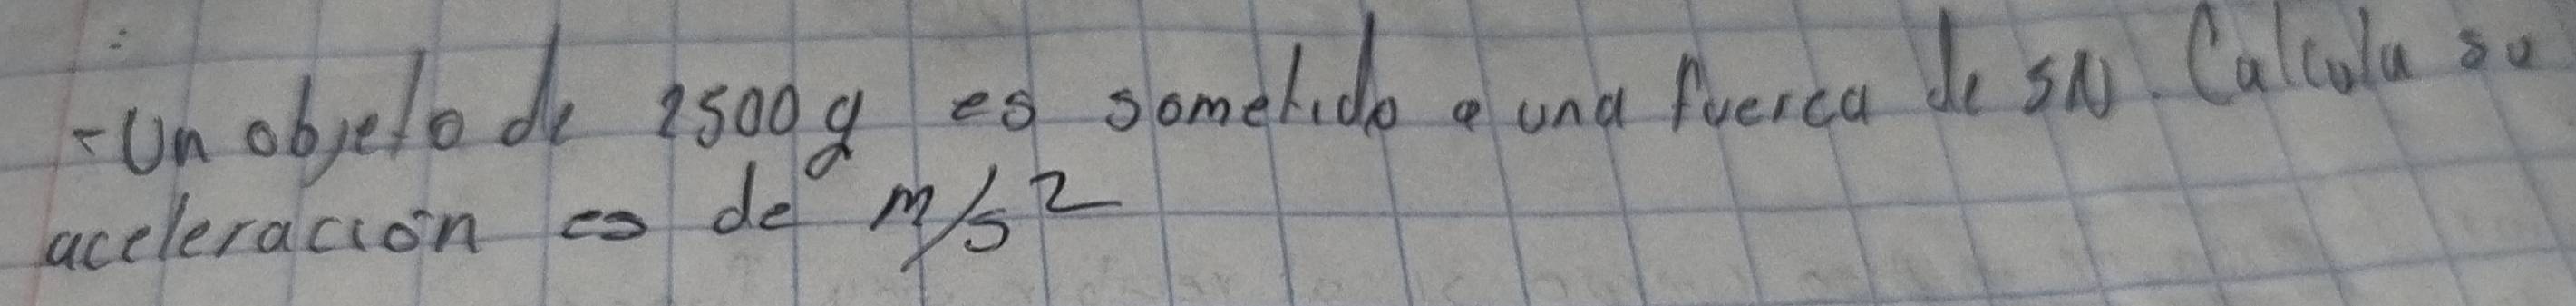 -Un objeto de 2500g es sometido a una fuerca de 5N. Calcula su
aceleración es de m/s2